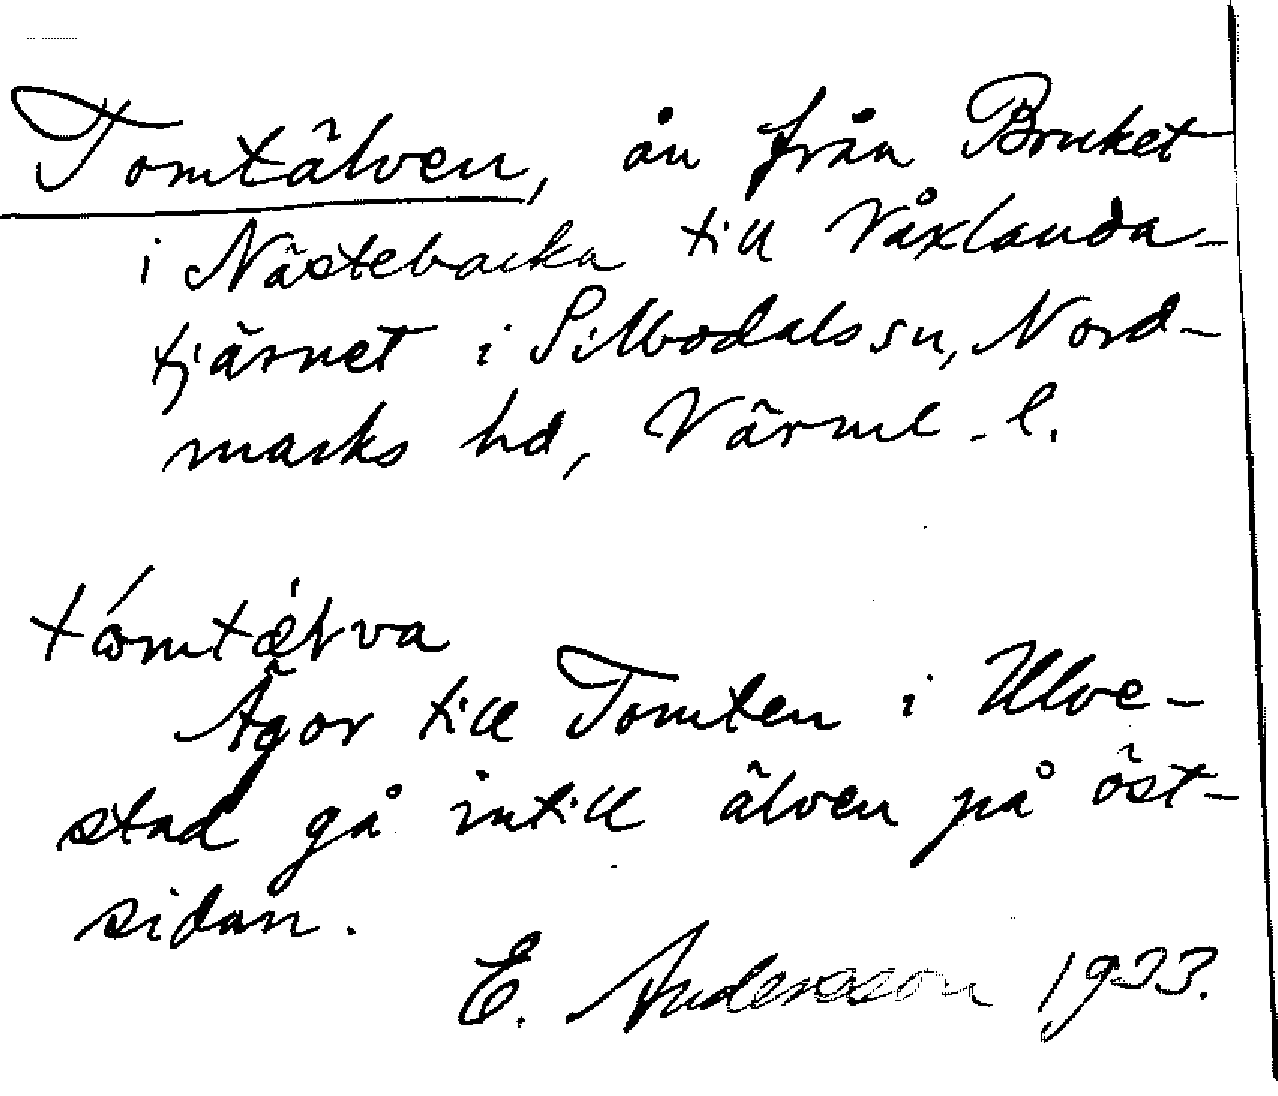 Tomtälven, ån från Bruket
i Nästebacka till Våxlanda-
tjärnet i Silbodals sn, Nord-
marks hd, Värml. l.
tómtǽlva
Ägor till Tomten i Ulve-
stad gå intill älven på öst-
sidan.
E. Andersson 1933.